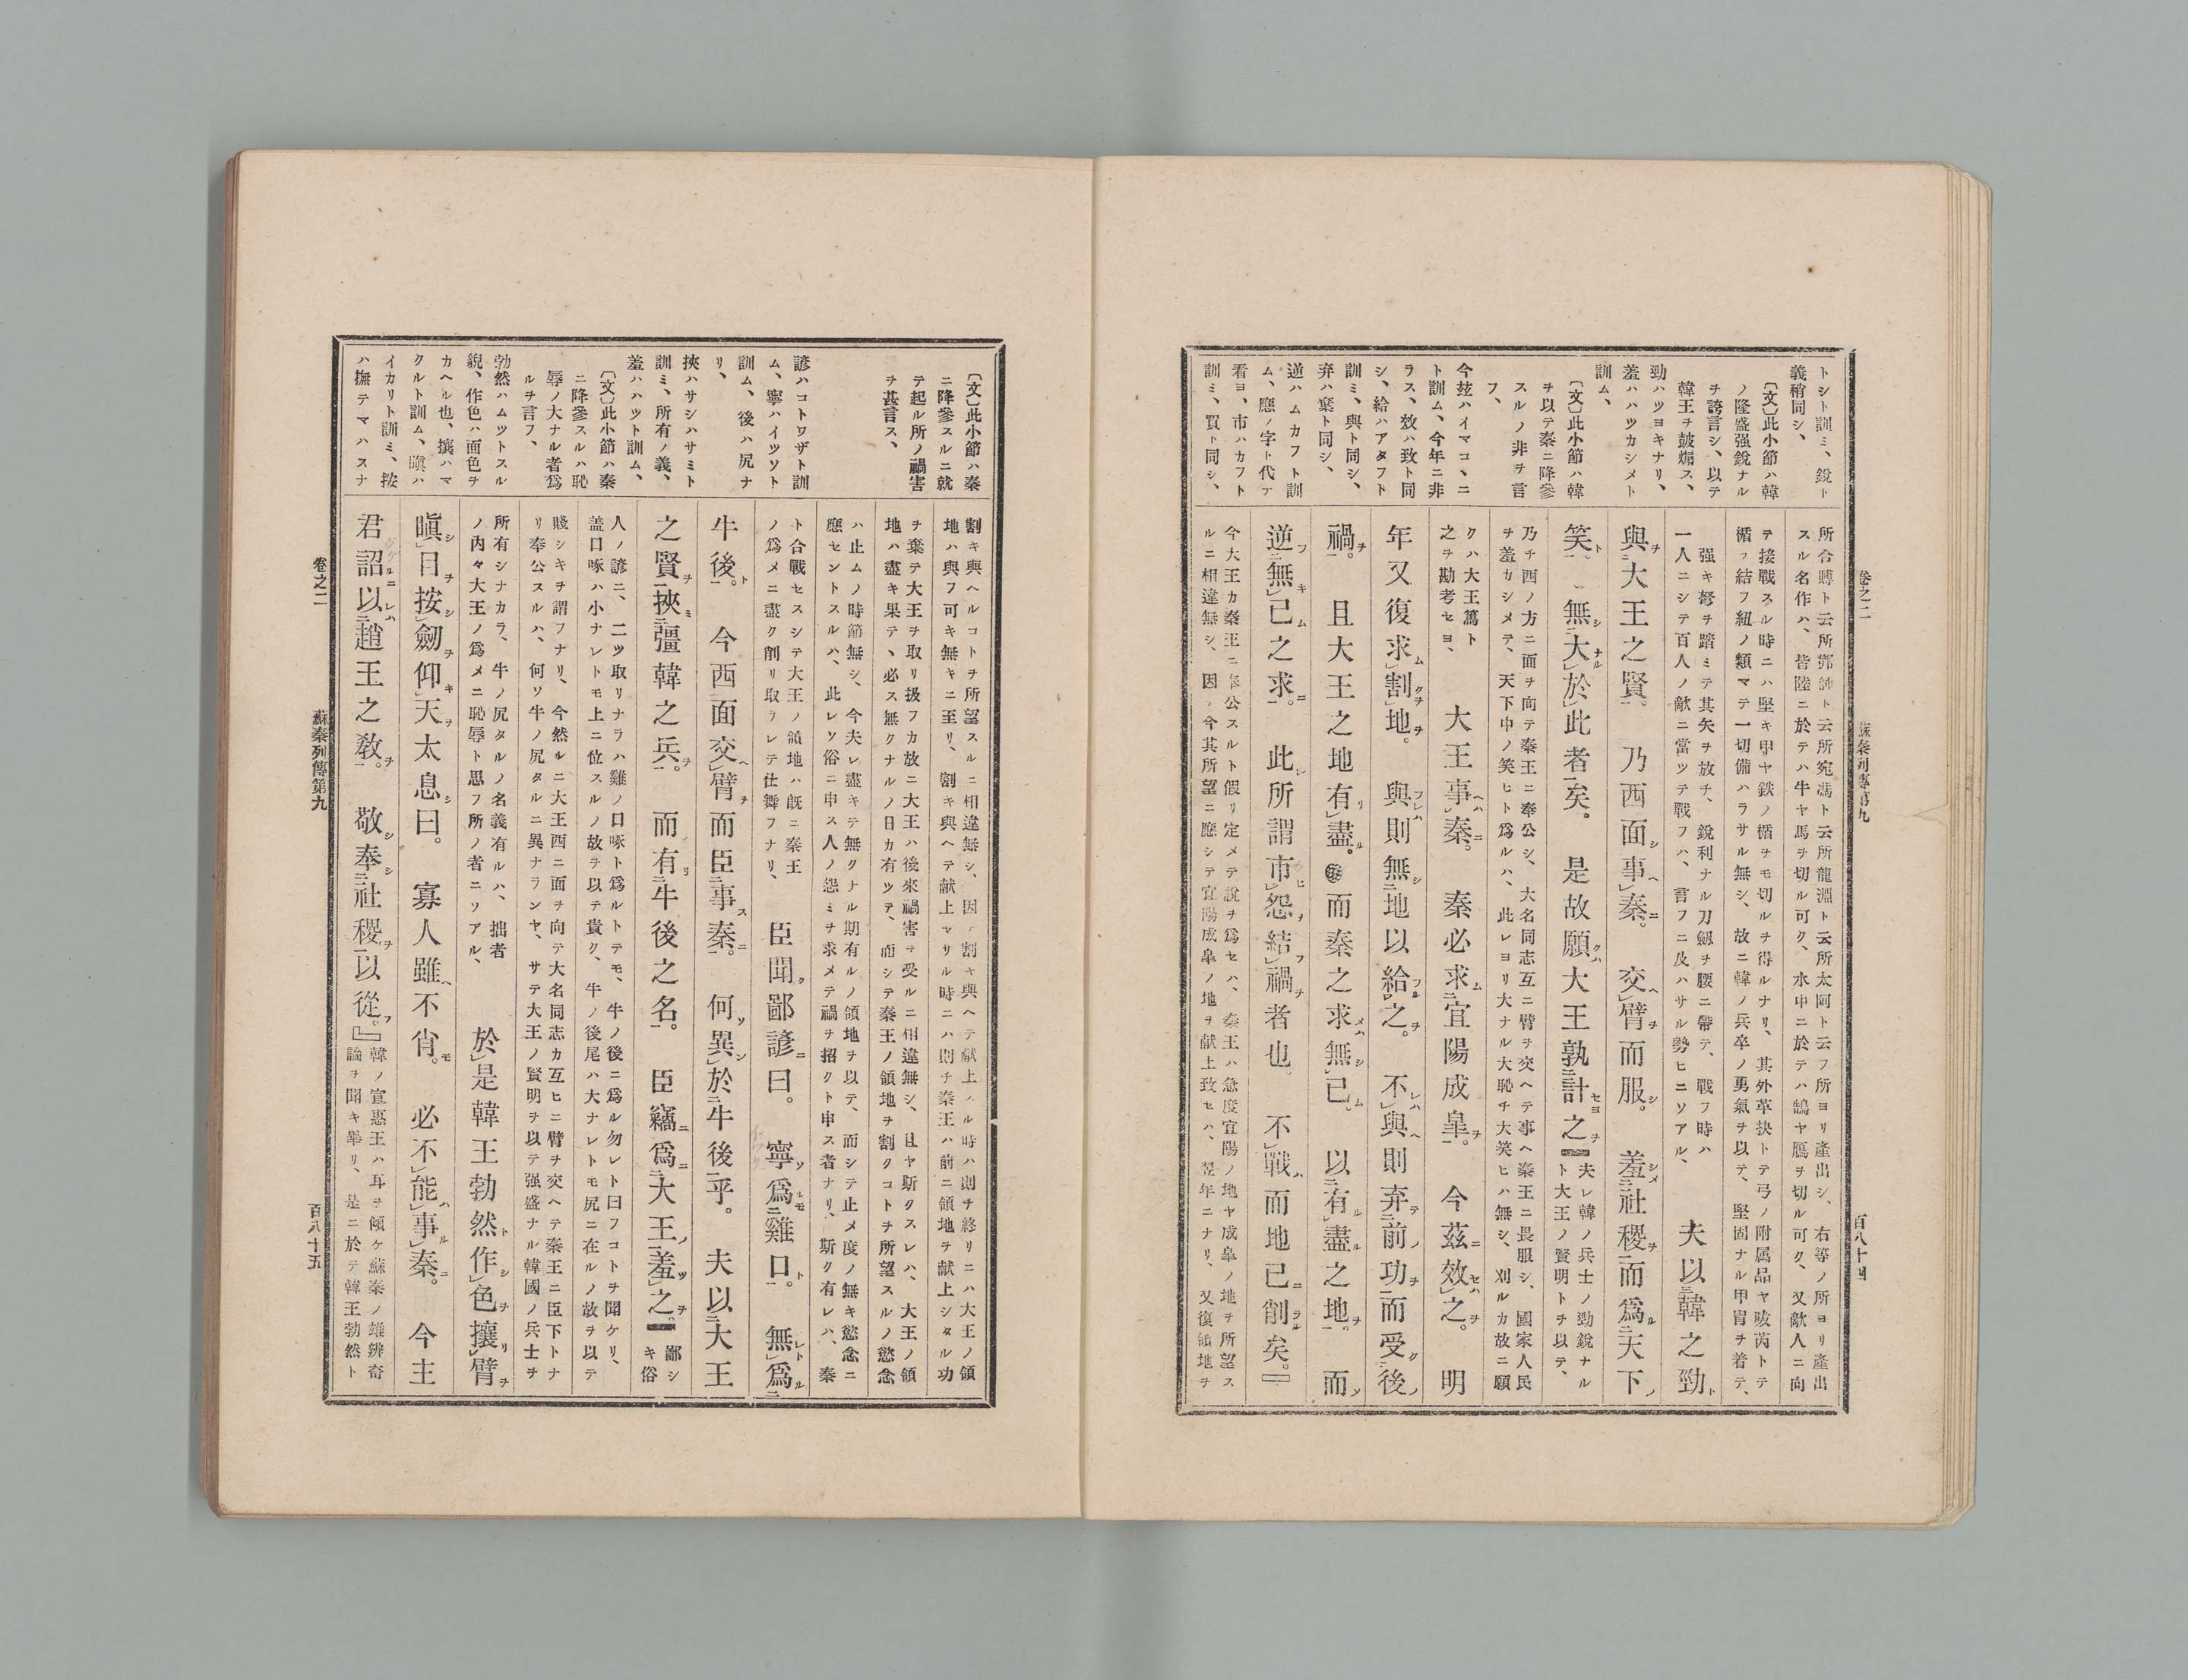 卷之二
蘇秦列傳第九
百八十四
トシト訓ミ、銳ト
義稍同シ、
〔文〕此小節ハ韓
ノ隆盛强銳ナル
ヲ誇言シ、以テ
韓王ヲ皷煽ス、
勁ハツヨキナリ、
羞ハハツカシメト
訓ム、
〔文〕此小節ハ韓
ヲ以テ秦ニ降參
スルノ非ヲ言
フ、
今玆ハイマコヽニ
ト訓ム、今年ニ非
ラス、效ハ致ト同
シ、給ハアタフト
訓ミ、與ト同シ、
弃ハ棄ト同シ、
逆ハムカフト訓
ム、應ノ字ト代ヘ
看ヨ、市ハカフト
訓ミ、買ト同シ、
所合膊ト云所鄧師ト云所宛馮ト云所龍淵ト云所太阿ト云フ所ヨリ產出シ、右等ノ所ヨリ產出
スル名作ハ、皆陸ニ於テハ牛ヤ馬ヲ切ル可ク、水中ニ於テハ鵠ヤ鴈ヲ切ル可ク、又敵人ニ向
テ接戰スル時ニハ堅キ甲ヤ鉄ノ楯ヲモ切ルヲ得ルナリ、其外革抉トテ弓ノ附属品ヤ㕹芮トテ
楯ヲ結フ紐ノ類マテ一切備ハラサル無シ、故ニ韓ノ兵卒ノ勇氣ヲ以テ、堅固ナル甲冑ヲ着テ、
强キ弩ヲ踏ミテ其矢ヲ放チ、銳利ナル刀劔ヲ腰ニ帶テ、戰フ時ハ
一人ニシテ百人ノ敵ニ當ツテ戰フハ、言フニ及ハサル勢ヒニソアル、
夫以韓之勁
與大王之賢。乃西面事秦。交臂而服。羞社稷而爲天下
笑。無大於此者矣。是故願大王孰計之
夫レ韓ノ兵士ノ勁銳ナル
ト大王ノ賢明トヲ以テ、
乃チ西ノ方ニ面ヲ向テ秦王ニ奉公シ、大名同志互ニ臂ヲ交ヘテ事ヘ秦王ニ畏服シ、國家人民
ヲ羞カシメテ、天下中ノ笑ヒト爲ルハ、此レヨリ大ナル大恥ヲ大笑ヒハ無シ、刈ルカ故ニ願
クハ大王篤ト
之ヲ勘考セヨ、
大王事秦。秦必求宜陽成皐。今茲效之。明
年又復求割地。與則無地以給之。不與則弃前功而受後
禍。且大王之地有盡。而秦之求無已。以有盡之地。而
逆無已之求。此所謂市怨結禍者也。不戰而地已削矣。』
今大王カ秦王ニ奉公スルト假リ定メテ說ヲ爲セハ、秦王ハ急度宜陽ノ地ヤ成皐ノ地ヲ所望ス
ルニ相違無シ、因テ今其所望ニ應シテ宜陽成皐ノ地ヲ献上致セハ、翌年ニナリ、又復領地ヲ
〔文〕此小節ハ秦
ニ降參スルニ就
テ起ル所ノ禍害
ヲ甚言ス、
諺ハコトワザト訓
ム、寧ハイツソト
訓ム、後ハ尻ナ
リ、
挾ハサシハサミト
訓ミ、所有ノ義、
羞ハハツト訓ム、
〔文〕此小節ハ秦
ニ降參スルハ恥
辱ノ大ナル者爲
ルヲ言フ、
勃然ハムツトスル
貌、作色ハ面色ヲ
カヘル也、攘ハマ
クルト訓ム、瞋ハ
イカリト訓ミ、按
ハ撫テマハスナ
割キ與ヘルコトヲ所望スルニ相違無シ、因テ割キ與ヘテ献上スル時ハ則チ終リニハ大王ノ領
地ハ與フ可キ無キニ至リ、割キ與ヘテ献上セサル時ニハ則チ秦王ハ前ニ領地ヲ献上シタル功
ヲ棄テ大王ヲ取リ扱フカ故ニ大王ハ後來禍害ヲ受ルニ相違無シ、且ヤ斯クスレハ、大王ノ領
地ハ盡キ果テヽ必ス無クナルノ日カ有ツテ、而シテ秦王ノ領地ヲ割クコトヲ所望スルノ慾念
ハ止ムノ時節無シ、今夫レ盡キテ無クナル期有ルノ領地ヲ以テ、而シテ止メ度ノ無キ慾念ニ
應セントスルハ、此レソ俗ニ申ス人ノ怨ミヲ求メテ禍ヲ招クト申ス者ナリ、斯ク有レハ、秦
ト合戰セスシテ大王ノ領地ハ旣ニ秦王
ノ爲メニ盡ク削リ取ラレテ仕舞フナリ、
臣聞鄙諺曰。寧爲雞口。無爲
牛後。今西面交臂而臣事秦。何異於牛後乎。夫以大王
之賢挾彊韓之兵。而有牛後之名。臣竊爲大王羞之。
鄙シ
キ俗
人ノ諺ニ、二ツ取リナラハ雞ノ口啄ト爲ルトテモ、牛ノ後ニ爲ル勿レト曰フコトヲ聞ケリ、
盖口啄ハ小ナレトモ上ニ位スルノ故ヲ以テ貴ク、牛ノ後尾ハ大ナレトモ尻ニ在ルノ故ヲ以テ
賤シキヲ謂フナリ、今然ルニ大王西ニ面ヲ向テ大名同志カ互ヒニ臂ヲ交ヘテ秦王ニ臣下トナ
リ奉公スルハ、何ソ牛ノ尻タルニ異ナランヤ、サテ大王ノ賢明ヲ以テ强盛ナル韓國ノ兵士ヲ
所有シナカラ、牛ノ尻タルノ名義有ルハ、拙者
ノ內々大王ノ爲メニ恥辱ト思フ所ノ者ニソアル、
於是韓王勃然作色攘臂
瞋目按劒仰天太息曰。寡人雖不肖。必不能事秦。今主
君詔以趙王之敎。敬奉社稷以從。』
韓ノ宣惠王ハ耳ヲ傾ケ蘇秦ノ雄辨奇
論ヲ聞キ畢リ、是ニ於テ韓王勃然ト
卷之二
蘇秦列傳第九
百八十五